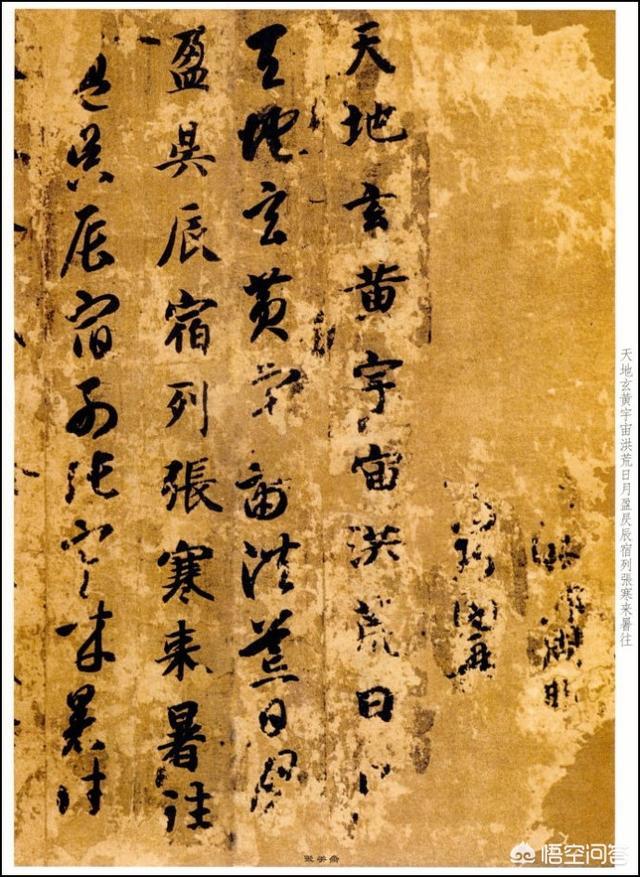 天地玄黄宇宙洪荒日月盈昃辰宿列張寒来暑往
天地玄黄宇宙洪荒日
天地玄黄宇宙洪荒日月
盈昃辰宿列張寒来暑往
盈昃辰宿列張寒来暑往
悟空问答